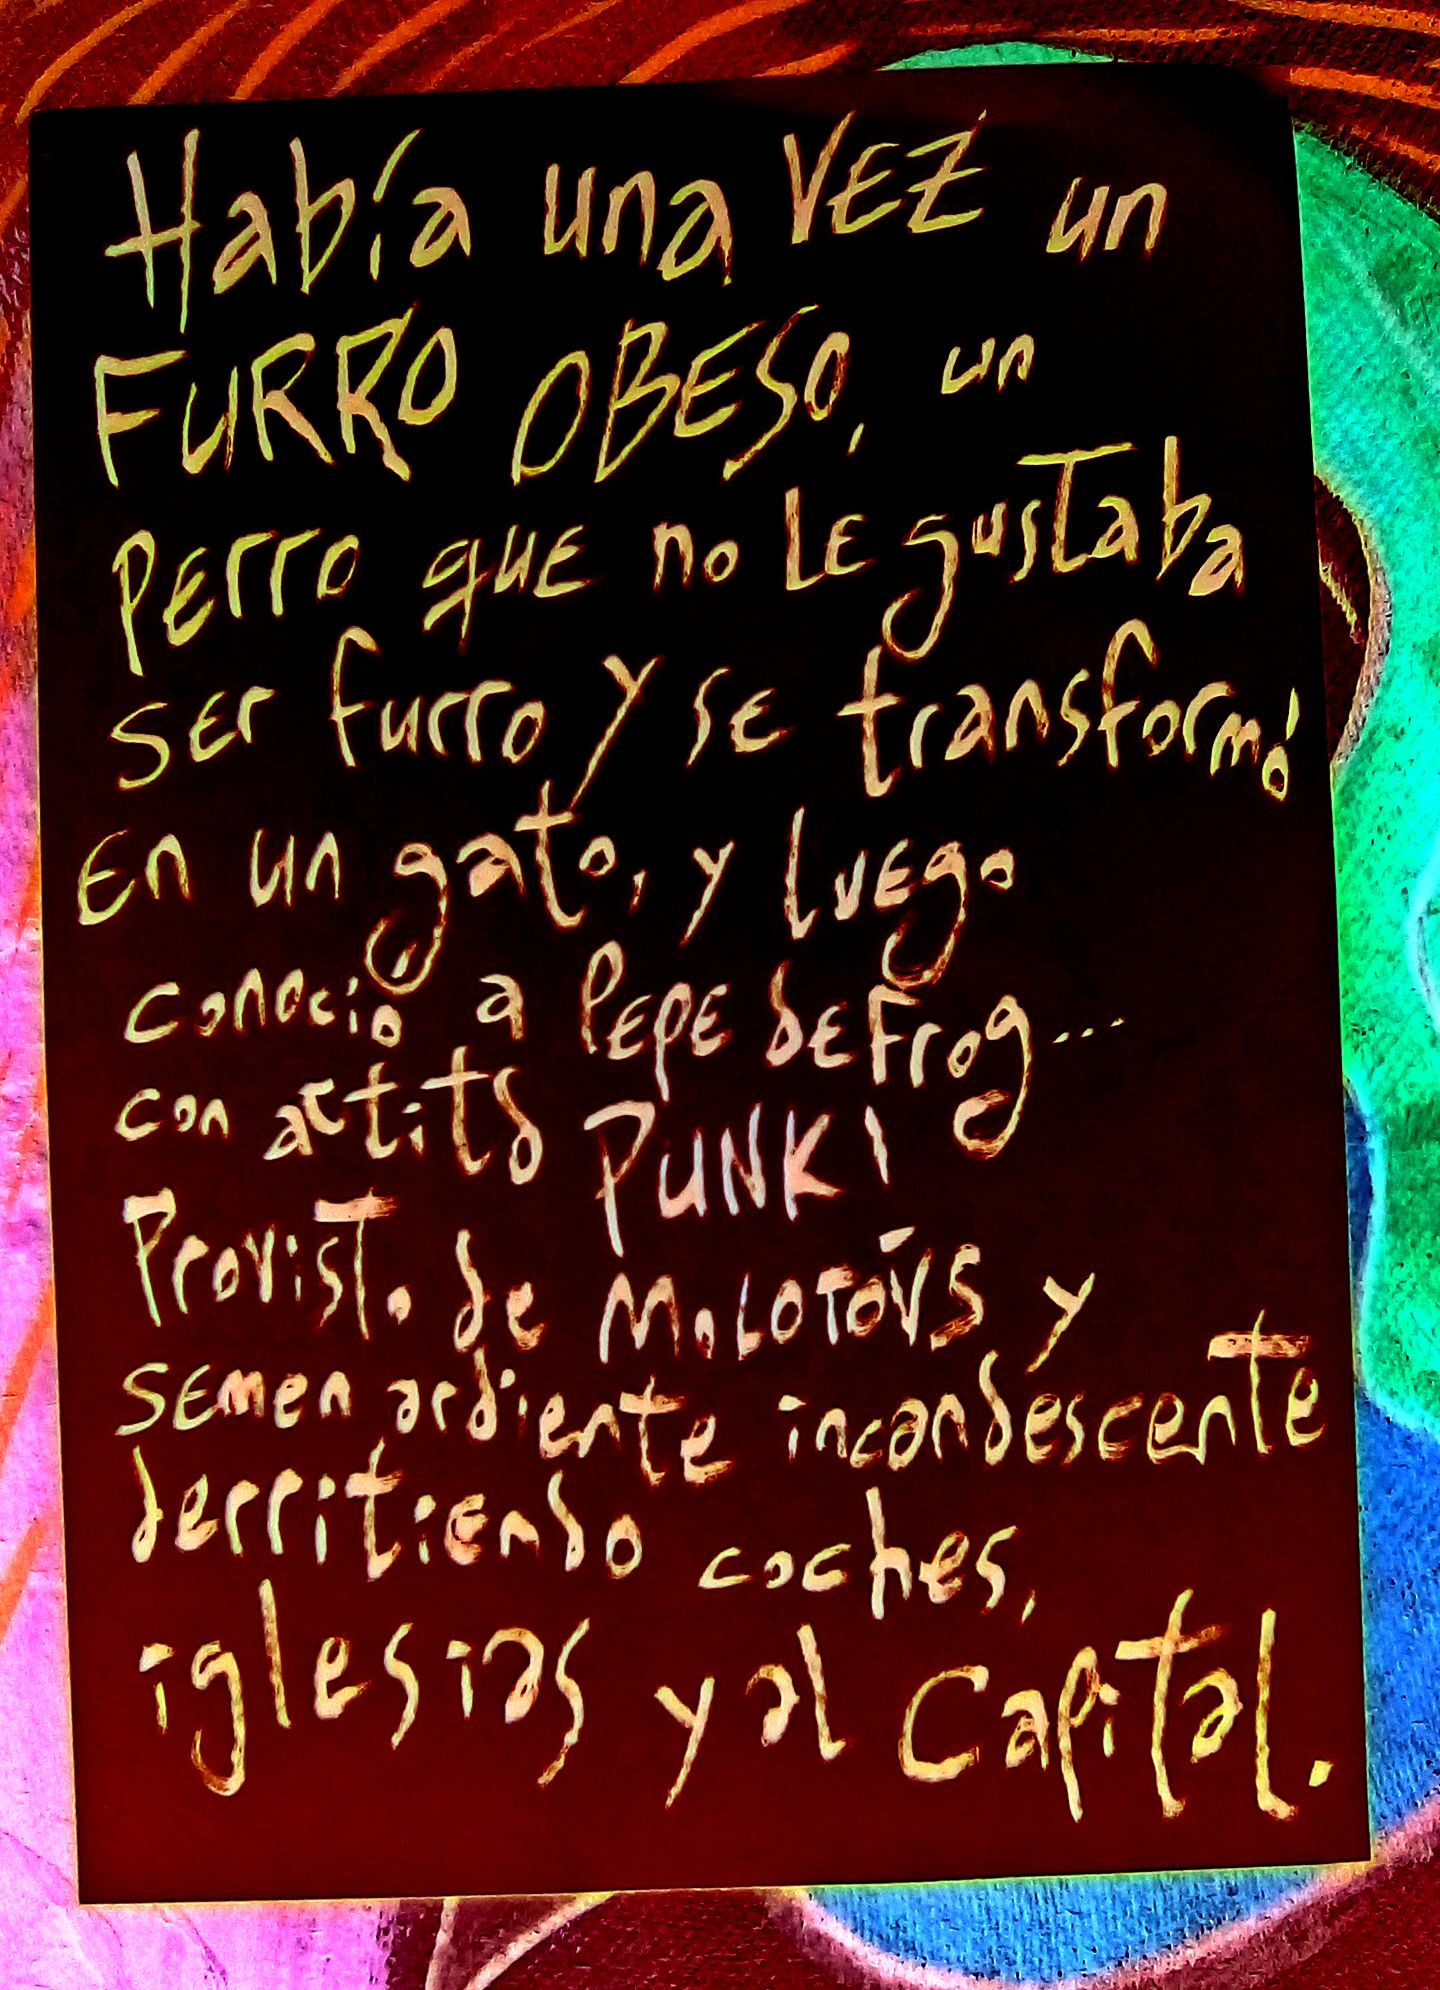 Había una VEZ un
FURRO OBESO, un
PErro quE no LE gusTaba
sEr furro y sE transformó
En un gato, y luEgo
conoció a PEpE dEFrog...
con actitd PUNK!
ProvisTo de MoLOTÓVS y
sEmen ardiente incandescente
derritiendo coches,
iglesias y al CapiTal.